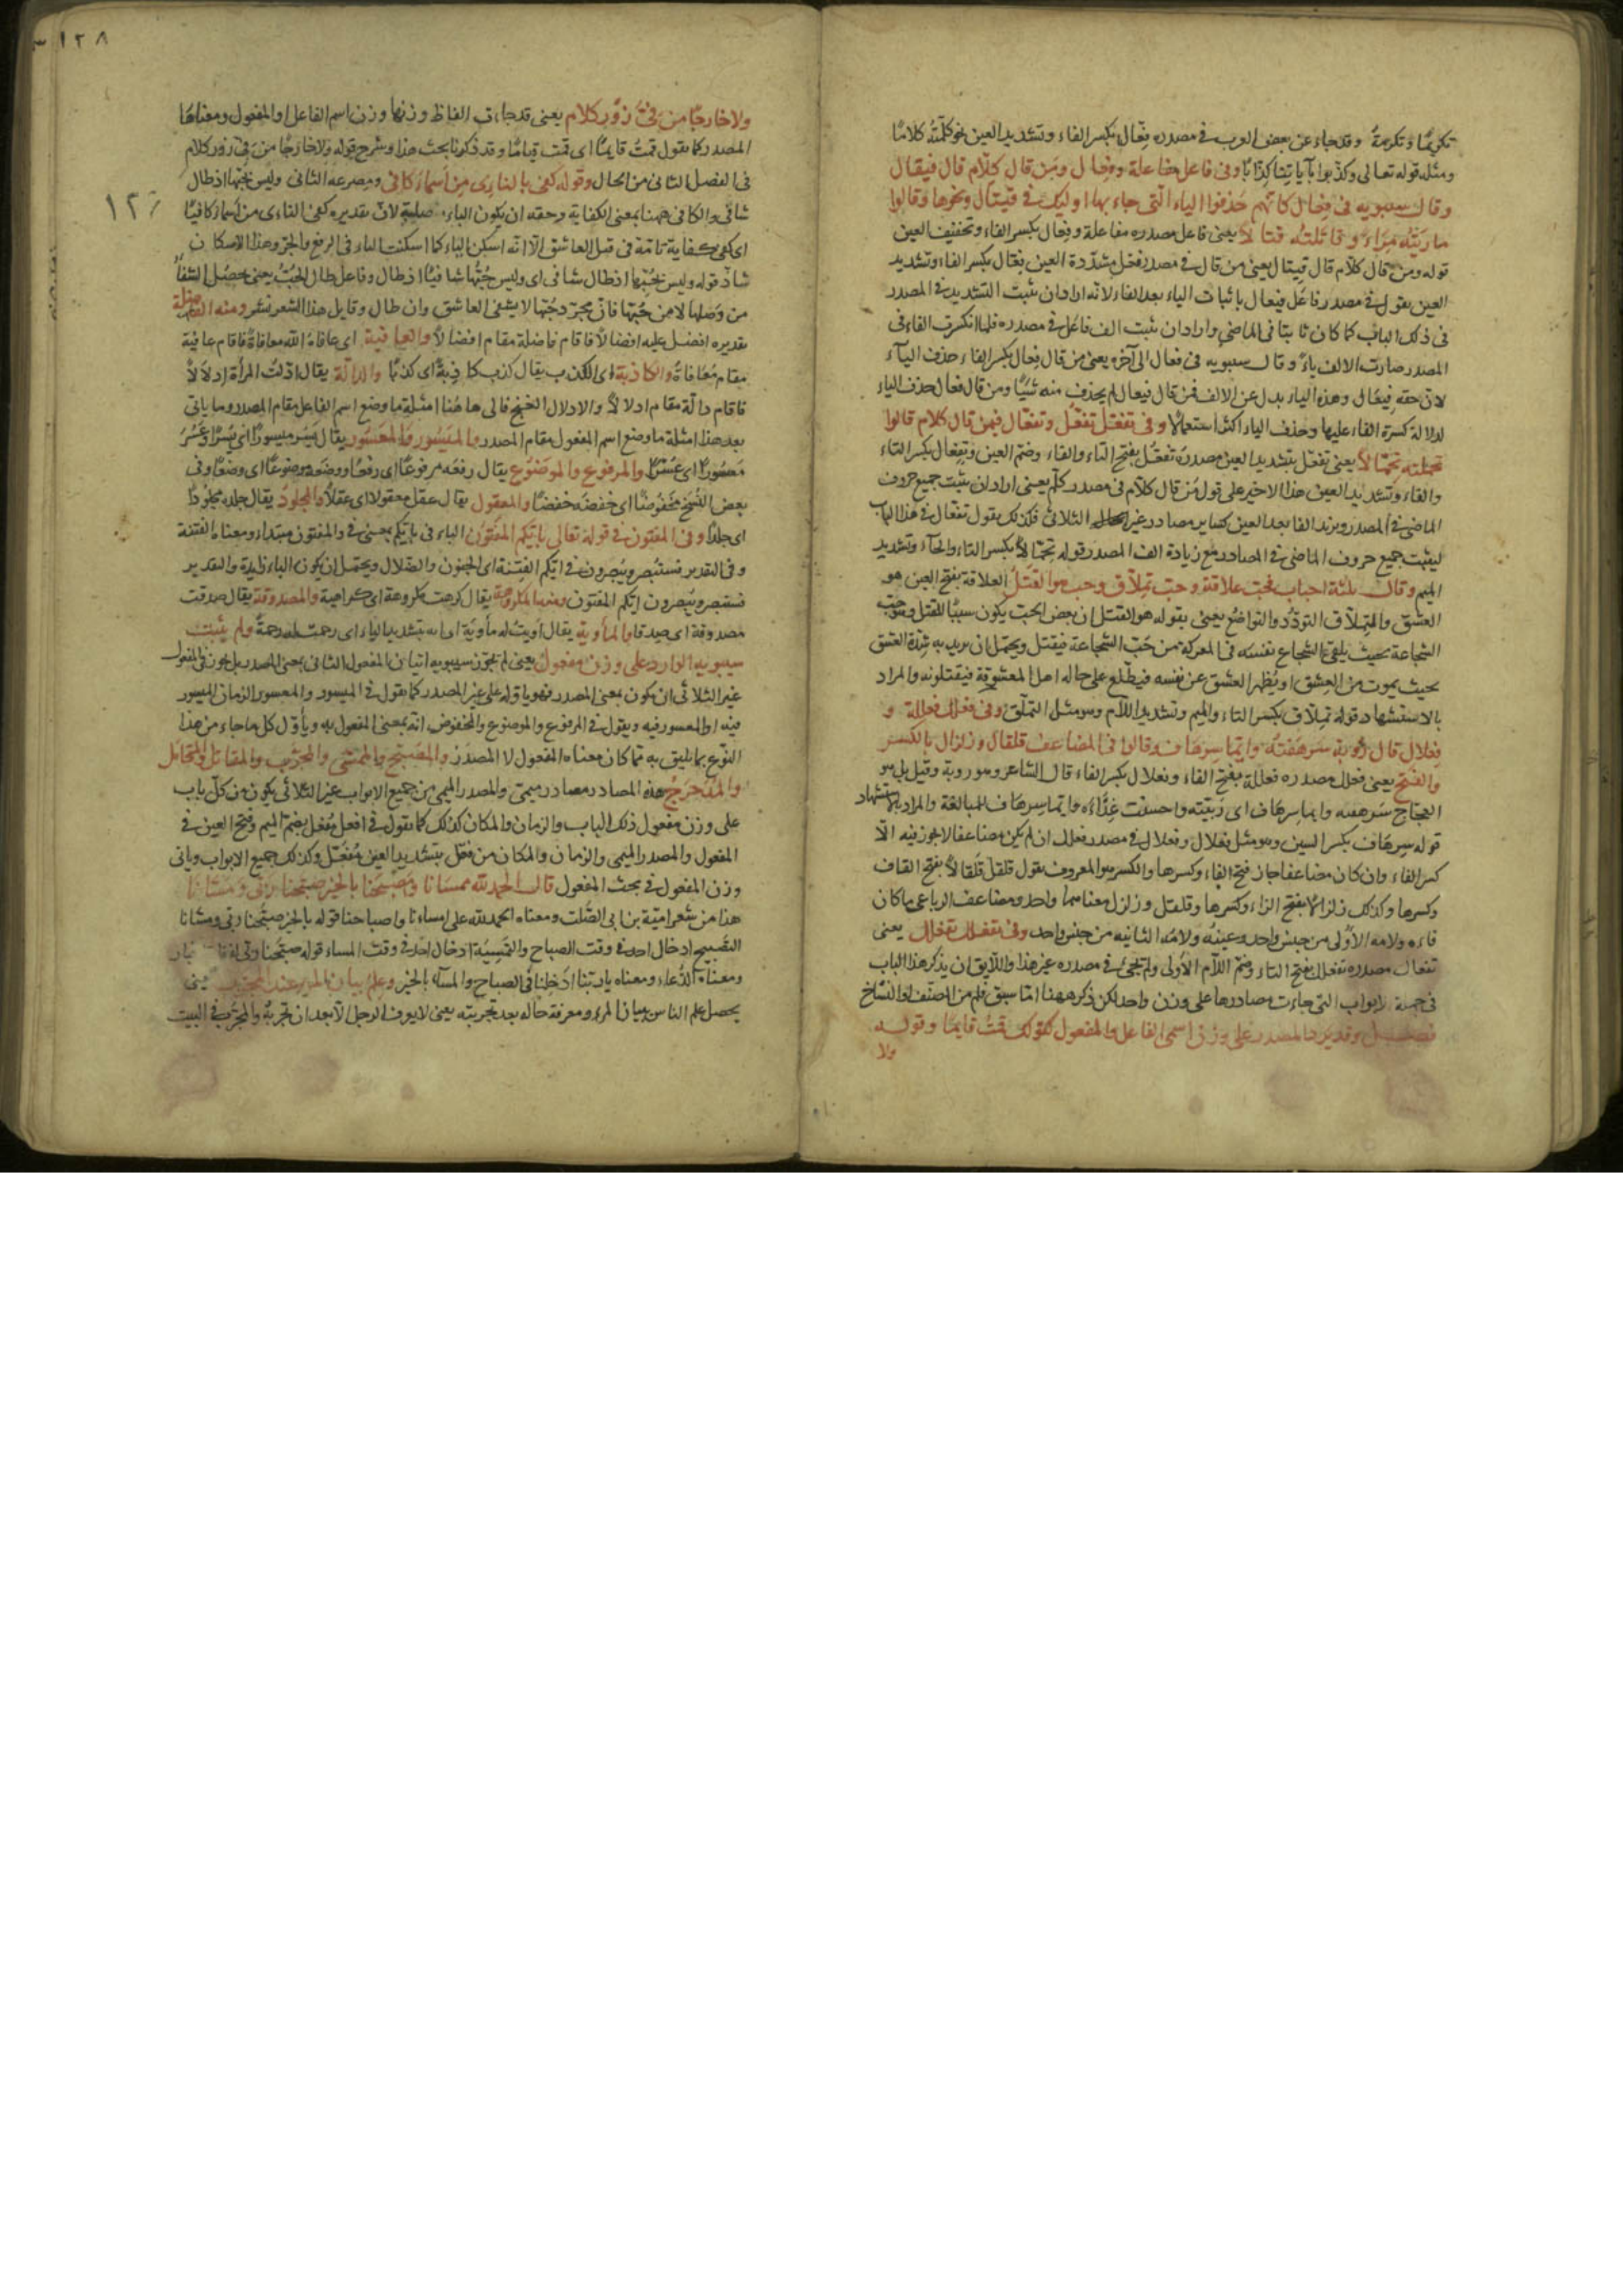 تكريمًا وتكرمةً وقد جاء عن بعض العرب في مصدره فِعّال بكسر الفاء وتشديد العين نحو كلّمتُه كلامًا
ومثله قوله تعالى وكذّبوا بآياتنا كِذّابًا وفي فاعل مفاعلة وفِعال ومَن قال كلّام قال فيقال
وقال سيبويه في فِعال كانهم حذفوا الياء التي جاء بها اولئك في قيتال ونحوها وقالوا
ماريتُه مِرّاءً وقاتلتُه قتّالًا يعني فاعل مصدره مفاعلة وفعال بكسر الفاء وتخفيف العين
قوله ومن قال كلّام قال قيتال يعني من قال في مصدر فعّل مشدّدة العين فعّال بكسر الفاء وتشديد
العين يقول في مصدر فاعَل فيعال باثبات الياء بعد الفاء لانه اراد ان يثبت التشديد في المصدر
في ذلك الباب كما كان ثابتًا في الماضي واراد ان يثبت الف فاعَل في مصدره فلما انكسرت الفاء في
المصدر صارت الالف ياءً وقال سيبويه في فعال الى آخره يعني من قال فِعال بكسر الفاء حذف الياء
لان حقه فيعال وهذه الياء بدل عن الالف فمن قال فيعال لم يحذف منه شيئًا ومن قال فعال حذف الياء
لدلالة كسرة الفاء عليها وحذف الياء اكثر استعمالًا وفي تفعّل تفعُّل وتفعّال فيمن قال كلام قالوا
تحمّلته تحمّالًا يعني تفعّل بتشديد العين مصدره تفعّل بفتح التاء والفاء وضم العين وتِفِعّال بكسر التاء
والفاء وتشديد العين هذا الاخير على قول من قال كلّام في مصدر كلّم يعني اراد ان يثبت جميع حروف
الماضي في المصدر ويزيد الفا بعد العين كساير مصادر غير الثلاثي فكذلك يقول تفعّال في هذا الباب
ليثبت جميع حروف الماضي في المصادر مع زيادة الف المصدر قوله تِحِمّالًا بكسر التاء والحاء وتشديد
الميم وقال ثلثة احباب فحبّ علاقة وحبّ تِملّاق وحب هو القتلُ العلاقة بفتح العين هو
العشق والتِملّاق التودّد والتواضع يعني بقوله هو القتل ان بعض الحبّ يكون سببًا للقتل وهو حبّ
الشجاعة بحيث يلقي الشجاع نفسه في المعركة من حبّ الشجاعة فيقتل ويحتمل ان يريد به شِدّة العشق
بحيث يموت من العشق او يُظهر العشق عن نفسه فيطّلع على حاله اهل المعشوقة فيقتلونه والمراد
بالاستشهاد قوله تِمِلّاق بكسر التاء والميم وتشديد اللام وهو مثل التملّق وفي فعلل فعللة و
فِعلال قال رؤبة سَرهَفتُه وايّما سِرهاف وقالوا في المضاعف قلقال وزلزال بالكسر
والفتح يعني فعلل مصدره فعللة بفتح الفاء وفعلال بكسر الفاء قال الشاعر وهو روبة وقيل بل هو
العجاج سَرهفته وايما سِرهاف اى ربّيته واحسنت غِذاءَه وايّما سِرهاف للمبالغة والمراد بالاستشهاد
قوله سِرهاف بكسر السين وهو مثل فعلال وفعلال في مصدر فعلل ان لم يكن مضاعفا لا يجوز فيه الّا
كسر الفاء وان كان مضاعفا جاز فتح الفاء وكسرها والكسر هو المعروف يقول قلقل قَلقالًا بفتح القاف
وكسرها وكذلك زلزالًا بفتح الزاء وكسرها وقلقل وزلزل معناهما واحد ومضاعف الرباعي ما كان
فاءه ولامه الاولى من جنس واحد وعينُه ولامُه الثانيه من جنس واحد وفي تفعلل تفعلل يعني
تفعلل مصدره تفعلل بفتح التاء وضم اللام الأولى ولم يجئ في مصدره غير هذا واللايق ان يذكر هذا الباب
في جملة الابواب التي جاءت مصادرها على وزن واحد لكن ذكره ههنا امّا سبق قلم من المصنّف او النسّاخ
فصــل وقد يرد المصدر على وزن اسمى الفاعل والمفعول كقولك قمتُ قايمًا وقوله
ولا
١٢٨
ولا خارجًا من فِيَّ زُورُ كلام يعني قد جاءت الفاظ وزنها وزن اسم الفاعل او المفعول ومعناها
المصدر كما يقول قمتُ قايمًا اى قمت قيامًا وقد ذكرنا بحث هذا وشرح قوله ولا خارجًا من فيّ زور كلام
في الفصل الثاني من الحال وقوله كفى بالنأى من اسماء كافي ومصرعه الثاني وليس لحبّها اذ طال
شافي والكافي ههنا بمعنى الكفاية وحقه ان يكون الياء لان تقديره كفى النأى من اسماء كافيًا
اى كفى كفاية تامّة في قتل العاشق الّا انّه اسكن الياء كما اسكنت الياء في الرفع والجرّ وهذا الاسكان
شاذّ قوله وليس لحُبّها اذ طال شافى اى وليس حُبّها شافيًا اذ طال وفاعل طال الحُبّ يعني يحصُل الشفاءُ
من وَصلها لا من حُبّها فانّ مجرّد حُبّها لا يشفى العاشق وان طال وقايل هذا الشعر بشر ومنه الفاضلة
تقديره افضل عليه افضالًا فاقام فاضلة مقام افضالًا والعافية اى عافاه اللّه معافاةً فاقام عافية
مقام مُعافاةً والكاذبة اى الكذب يقال كذب كاذِبةً اى كذبًا والدالّة يقال ادّلت المرأة اِدلالًا
فاقام دالّة مقام ادلالًا والادلال الغنج فالى هاهُنا امثلة ما وضع اسم الفاعل مقام المصدر وما ياتي
بعد هذا امثلة ما وضع اسم المفعول مقام المصدر والميسُور والمعسُور يقال يَسَر ميسورًا اى يُسرًا وعَسُرَ
مَعسُورًا اى عُسرًا والمرفوع والموضُوع يقال رفعَه مرفوعًا اى رفعًا ووضعه موضوعًا اى وضعًا وفي
بعض النُسَخ مخفوضًا اى خفضَه خفضًا والمعقول يقال عقل معقولًا اى عقلًا والمجلود يقال جلده مجلودًا
اى جلدًا وفي المفتون في قوله تعالى بايّكم المفتُون الباء في بايّكم بمعنى في والمفتون مبتداء ومعناه الفتنة
وفي التقدير فستُبصر ويُبصرون في ايّكم الفِتنة اى الجنون والضلال ويحتمل ان يكون الباء زايدة والتقدير
فستبصر ويُبصرون ايّكم المفتون ومنه المكروهة يقال كرهت مكروهة اى كراهية والمصدوقة يقال صدقت
مصدوقة اى صِدقا والمأويّة يقال اويتُ له مأويّة اى اية بتشديد الياء اى رحمت له رحمةً ولم يثبت
سيبويه الوارد على وزن مفعول يعني لم يُجوّز سيبويه اتيان المفعول الثاني بمعنى المصدر بل يجوز في المفعول
غير الثلاثي ان يكون بمعنى المصدر فهو ياوّله على غير المصدر كما يقول في الميسور والمعسور الزمان الميسور
فيه او المعسور فيه ويقول في المرفوع والموضوع والمخفوض انّه بمعنى المفعول به ويأوّل كل ما جاء من هذا
النوع بما يليق به ممّا كان معناه المفعول لا المصدر والمُصَبَّح والمُمسّى والمجرّب والمقاتَل والمتحامَل
والمُدحرَج هذه المصادر مصادر ميمى والمصدر الميمى من جميع الابواب غير الثلاثي يكون من كلّ باب
على وزن مفعول ذلك الباب والزمان والمكان كذلك كما يقول في افعل مُفعَل بضمّ الميم وفتح العين في
المفعول والمصدر الميمى والزمان والمكان من فعّل بتشديد العين مُفَعَّل وكذلك جميع الابواب وياتي
وزن المفعول في بحث المفعول قال الحمد للّه ممسانا ومُصبَحنا بالخير صبّحنا ربّى ومسّانا
هذا من شعر اميّة بن ابى الصّلت ومعناه الحمد لله على امساءنا واصباحنا قوله بالخير صبّحنا ربّي ومسّانا
التصبيح ادخال احد في وقت الصباح والتمسِيَة ادخال احد في وقت المساء قوله صبّحنا
ومعناه الدُّعاء ومعناه يا ربّنا اَدخِلنا في الصباح والمساء بالخير وعِلمُ بيان المرء عند المجرّب يعني
يحصل علم الناس ببيان المرء ومعرفة حاله بعد تجربته يعني لا يعرف الرجل الّا بعد ان تجربهُ والمجرّب في البيت